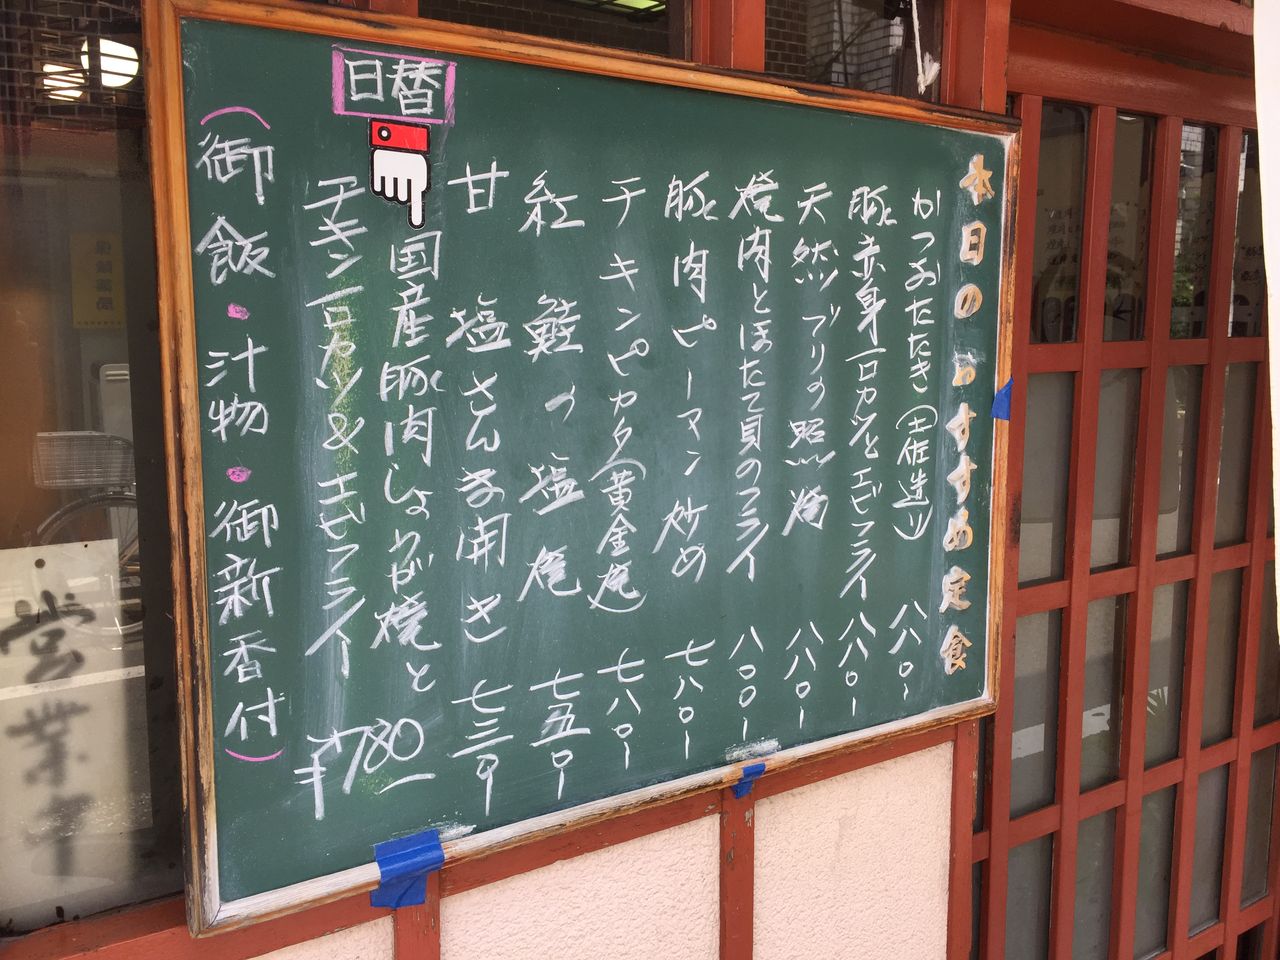 本日のおすすめ定食
かつおたたき(土佐造り) 八八〇-
豚赤身一口カツとエビフライ 八八〇-
天然ブリの照焼 八八〇-
焼肉とほたて貝のフライ 八〇〇-
豚肉ピーマン炒め 七八〇-
チキンピカタ(黄金焼) 七八〇-
紅鮭の塩焼 七五〇-
甘塩さんま開き 七三〇-
日替
国産豚肉しょうが焼と
チキン一口カツ&エビフライ ¥780
(御飯・汁物・御新香付)
営業中